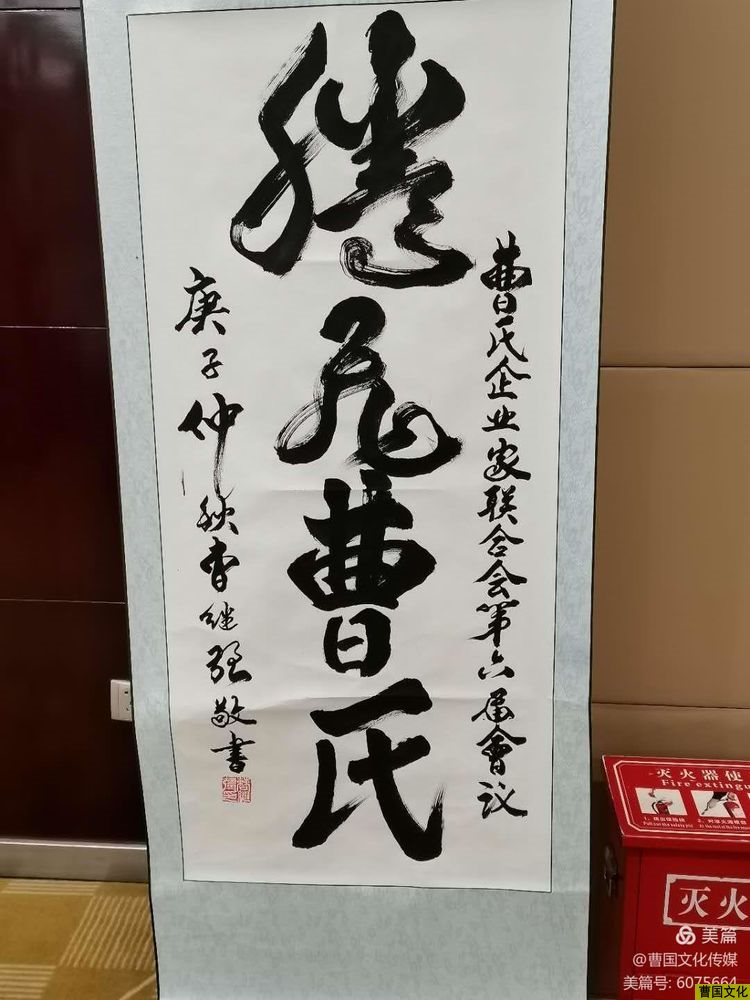 曹氏企业家联合会第六届會议
腾飛曹氏
庚子仲秋曹继强敬書
灭火器使
Fire extingu
灭火
美篇
@曹国文化传媒
美篇号: 6075664
曹国文化